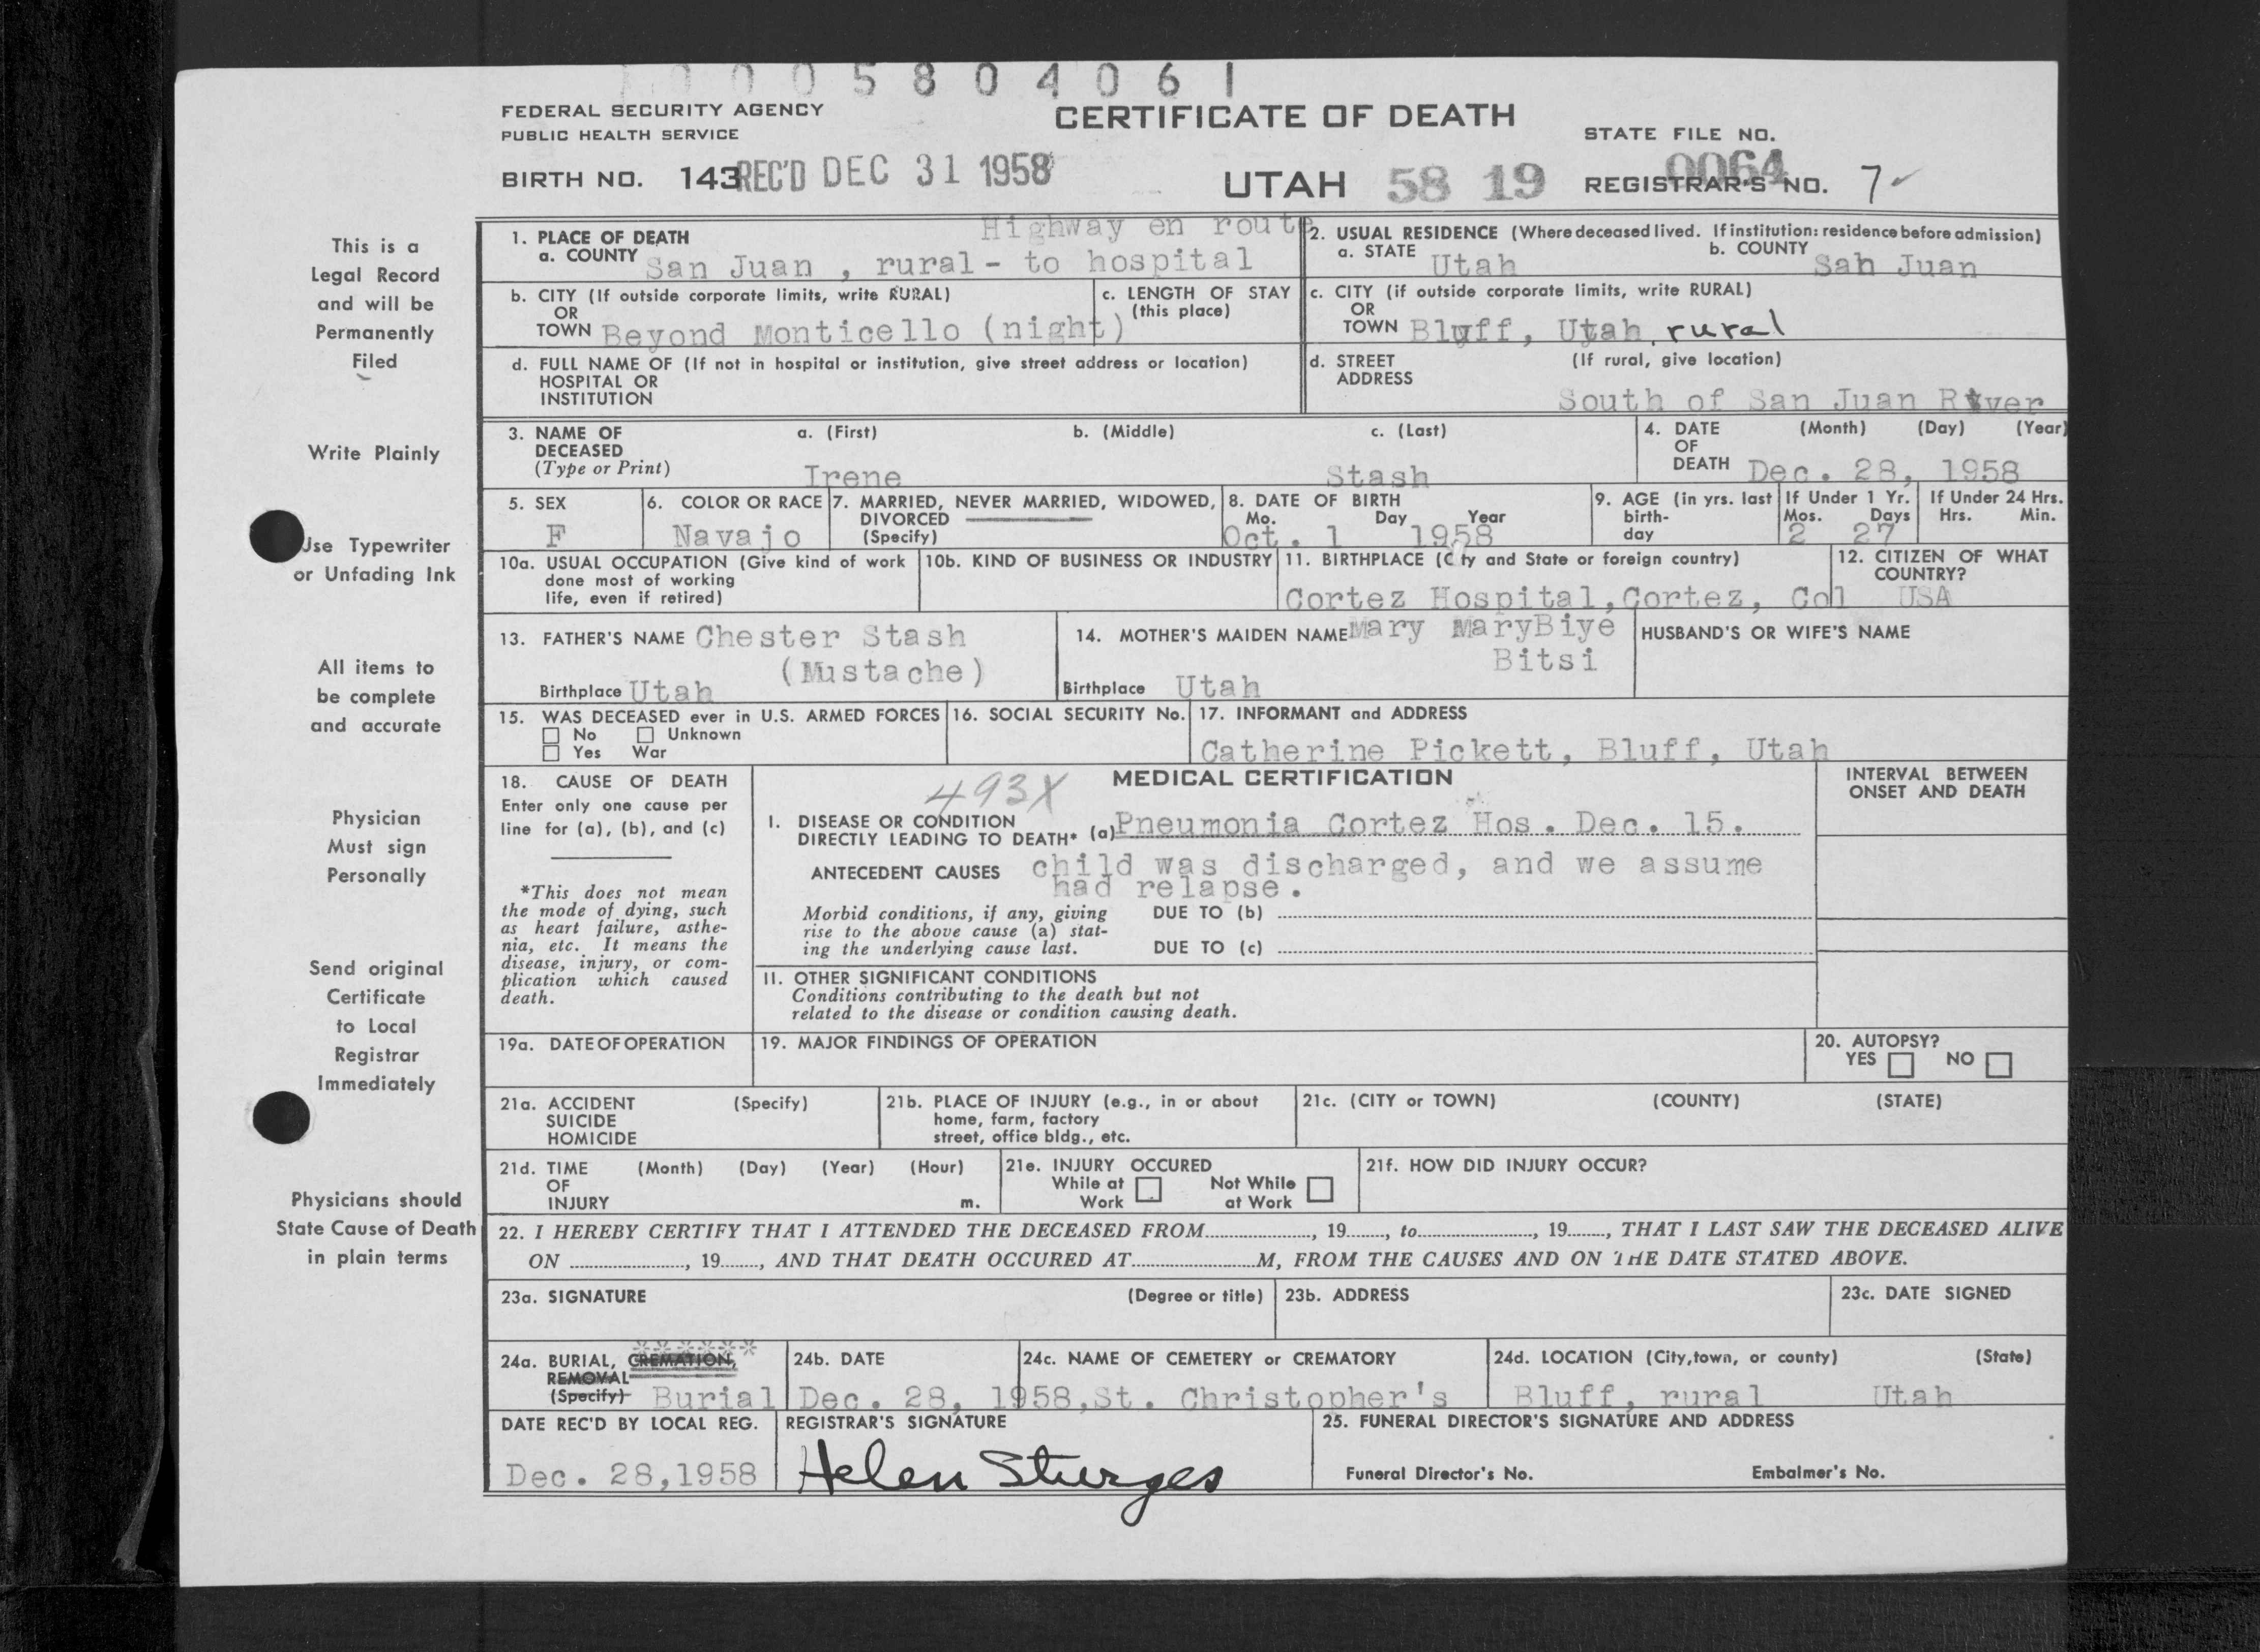 1 0 0 0 5 8 0 4 0 6 1
FEDERAL SECURITY AGENCY
PUBLIC HEALTH SERVICE
CERTIFICATE OF DEATH
STATE FILE NO.
BIRTH NO. 143 REC'D DEC 31 1958
UTAH 58 19 0064
REGISTRAR'S NO. 7 ✓
This is a
Legal Record
and will be
Permanently
Filed
Write Plainly
Use Typewriter
or Unfading Ink
All items to
be complete
and accurate
Physician
Must sign
Personally
Send original
Certificate
to Local
Registrar
Immediately
Physicians should
State Cause of Death
in plain terms
1. PLACE OF DEATH Highway en route
a. COUNTY San Juan , rural - to hospital
2. USUAL RESIDENCE (Where deceased lived. If institution: residence before admission)
a. STATE Utah b. COUNTY San Juan
b. CITY (If outside corporate limits, write RURAL)
OR
TOWN Beyond Monticello (night)
c. LENGTH OF STAY
(this place)
c. CITY (if outside corporate limits, write RURAL)
OR
TOWN Bluff, Utah, rural
d. FULL NAME OF (If not in hospital or institution, give street address or location)
HOSPITAL OR
INSTITUTION
d. STREET (If rural, give location)
ADDRESS
South of San Juan River
3. NAME OF a. (First) b. (Middle) c. (Last)
DECEASED
(Type or Print) Irene Stash
4. DATE (Month) (Day) (Year)
OF
DEATH Dec. 28, 1958
5. SEX
F
6. COLOR OR RACE
Navajo
7. MARRIED, NEVER MARRIED, WIDOWED,
DIVORCED
(Specify)
8. DATE OF BIRTH
Mo. Day Year
Oct. 1 1958
9. AGE (in yrs. last
birth-
day
If Under 1 Yr.
Mos. Days
2 27
If Under 24 Hrs.
Hrs. Min.
10a. USUAL OCCUPATION (Give kind of work
done most of working
life, even if retired)
10b. KIND OF BUSINESS OR INDUSTRY
11. BIRTHPLACE (City and State or foreign country)
Cortez Hospital, Cortez, Col
12. CITIZEN OF WHAT
COUNTRY?
USA
13. FATHER'S NAME Chester Stash
(Mustache)
Birthplace Utah
14. MOTHER'S MAIDEN NAME Mary MaryBiye
Bitsi
Birthplace Utah
HUSBAND'S OR WIFE'S NAME
15. WAS DECEASED ever in U.S. ARMED FORCES
No Unknown
Yes War
16. SOCIAL SECURITY No.
17. INFORMANT and ADDRESS
Catherine Pickett, Bluff, Utah
18. CAUSE OF DEATH
Enter only one cause per
line for (a), (b), and (c)
*This does not mean
the mode of dying, such
as heart failure, asthe-
nia, etc. It means the
disease, injury, or com-
plication which caused
death.
493X
MEDICAL CERTIFICATION
INTERVAL BETWEEN
ONSET AND DEATH
I. DISEASE OR CONDITION
DIRECTLY LEADING TO DEATH* (a) Pneumonia Cortez Hos. Dec. 15.
ANTECEDENT CAUSES child was discharged, and we assume
had relapse.
Morbid conditions, if any, giving DUE TO (b)
rise to the above cause (a) stat-
ing the underlying cause last. DUE TO (c)
II. OTHER SIGNIFICANT CONDITIONS
Conditions contributing to the death but not
related to the disease or condition causing death.
19a. DATE OF OPERATION
19. MAJOR FINDINGS OF OPERATION
20. AUTOPSY?
YES NO
21a. ACCIDENT (Specify)
SUICIDE
HOMICIDE
21b. PLACE OF INJURY (e.g., in or about
home, farm, factory
street, office bldg., etc.
21c. (CITY or TOWN) (COUNTY) (STATE)
21d. TIME (Month) (Day) (Year) (Hour)
OF
INJURY m.
21e. INJURY OCCURED
While at Not While
Work at Work
21f. HOW DID INJURY OCCUR?
22. I HEREBY CERTIFY THAT I ATTENDED THE DECEASED FROM........, 19......, to........, 19......, THAT I LAST SAW THE DECEASED ALIVE
ON ........, 19......, AND THAT DEATH OCCURED AT........M, FROM THE CAUSES AND ON THE DATE STATED ABOVE.
23a. SIGNATURE (Degree or title)
23b. ADDRESS
23c. DATE SIGNED
24a. BURIAL, CREMATION,
REMOVAL
(Specify) Burial
24b. DATE
Dec. 28, 1958,
24c. NAME OF CEMETERY or CREMATORY
St. Christopher's
24d. LOCATION (City,town, or county) (State)
Bluff, rural Utah
DATE REC'D BY LOCAL REG.
Dec. 28,1958
REGISTRAR'S SIGNATURE
Helen Sturges
25. FUNERAL DIRECTOR'S SIGNATURE AND ADDRESS
Funeral Director's No. Embalmer's No.